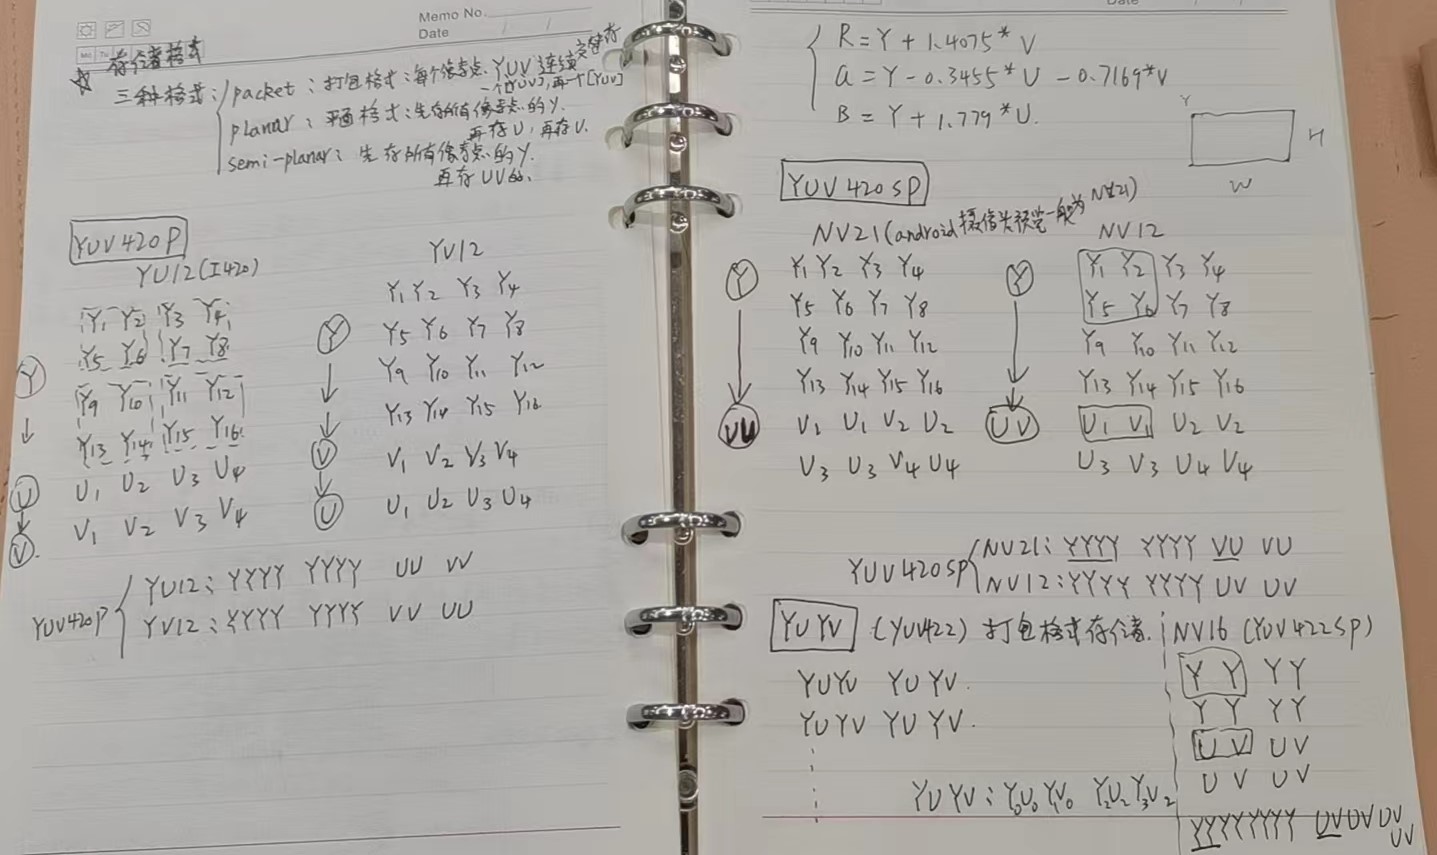 Memo No.
Date
存储格式
三种格式: packet: 打包格式: 每个像素点 YUV 连续交错存
一个[YUV], 再一个[YUV]
planar: 平面格式: 先存所有像素点的 Y.
再存 U, 再存 V.
semi-planar: 先存所有像素点的 Y.
再存 UV的.
YUV420P
YU12(I420)
Y1 Y2 Y3 Y4
Y5 Y6 Y7 Y8
Y9 Y10 Y11 Y12
Y13 Y14 Y15 Y16
U1 U2 U3 U4
V1 V2 V3 V4
Y
U
V
YV12
Y1 Y2 Y3 Y4
Y5 Y6 Y7 Y8
Y9 Y10 Y11 Y12
Y13 Y14 Y15 Y16
V1 V2 V3 V4
U1 U2 U3 U4
Y
V
U
YUV420P
YU12: YYYY YYYY UU VV
YV12: YYYY YYYY VV UU
Date
R = Y + 1.4075*V
G = Y - 0.3455*U - 0.7169*V
B = Y + 1.779*U.
Y
H
W
YUV420SP
NV21(android摄像头预览一般为NV21)
Y1 Y2 Y3 Y4
Y5 Y6 Y7 Y8
Y9 Y10 Y11 Y12
Y13 Y14 Y15 Y16
V1 U1 V2 U2
V3 U3 V4 U4
Y
VU
NV12
Y1 Y2 Y3 Y4
Y5 Y6 Y7 Y8
Y9 Y10 Y11 Y12
Y13 Y14 Y15 Y16
U1 V1 U2 V2
U3 V3 U4 V4
Y
UV
YUV420SP
NV21: YYYY YYYY VU VU
NV12: YYYY YYYY UV UV
YUYV (YUV422) 打包格式存储.
YUYV YUYV.
YUYV YUYV.
YUYV: Y0U0Y1V0 Y2U2Y3V2
NV16 (YUV422SP)
Y Y Y Y
Y Y Y Y
U V U V
U V U V
YYYYYYYY UVUVUV
UV